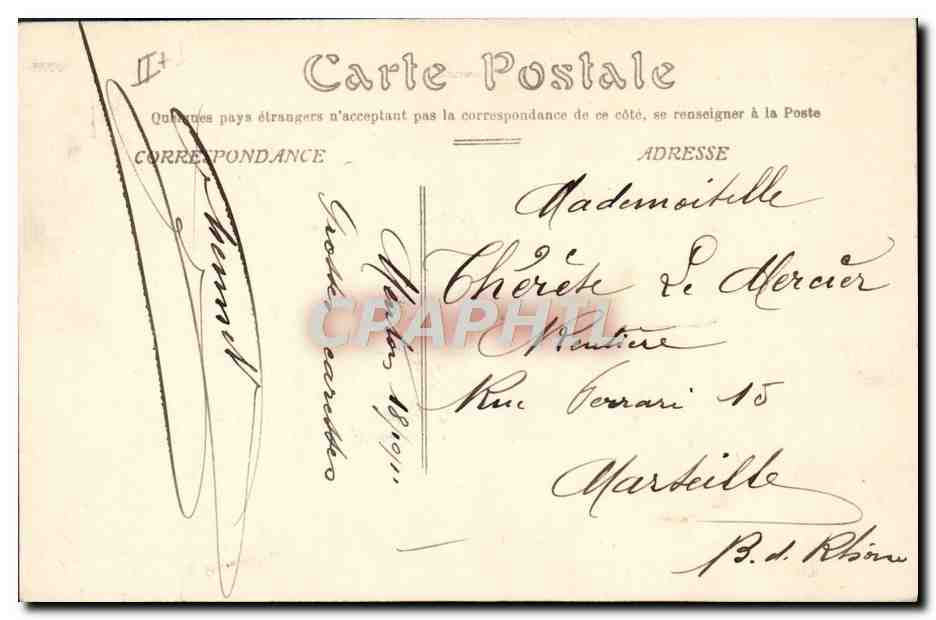 Carte Postale
Quelques pays étrangers n'acceptant pas la correspondance de ce côté, se renseigner à la Poste
CORRESPONDANCE
ADRESSE
18/10/11
Grosses caresses
Mademoiselle
Thérèse Le Mercier
Rentière
Rue Ferrari 15
Marseille
B. d. Rhône
CPAPHIL